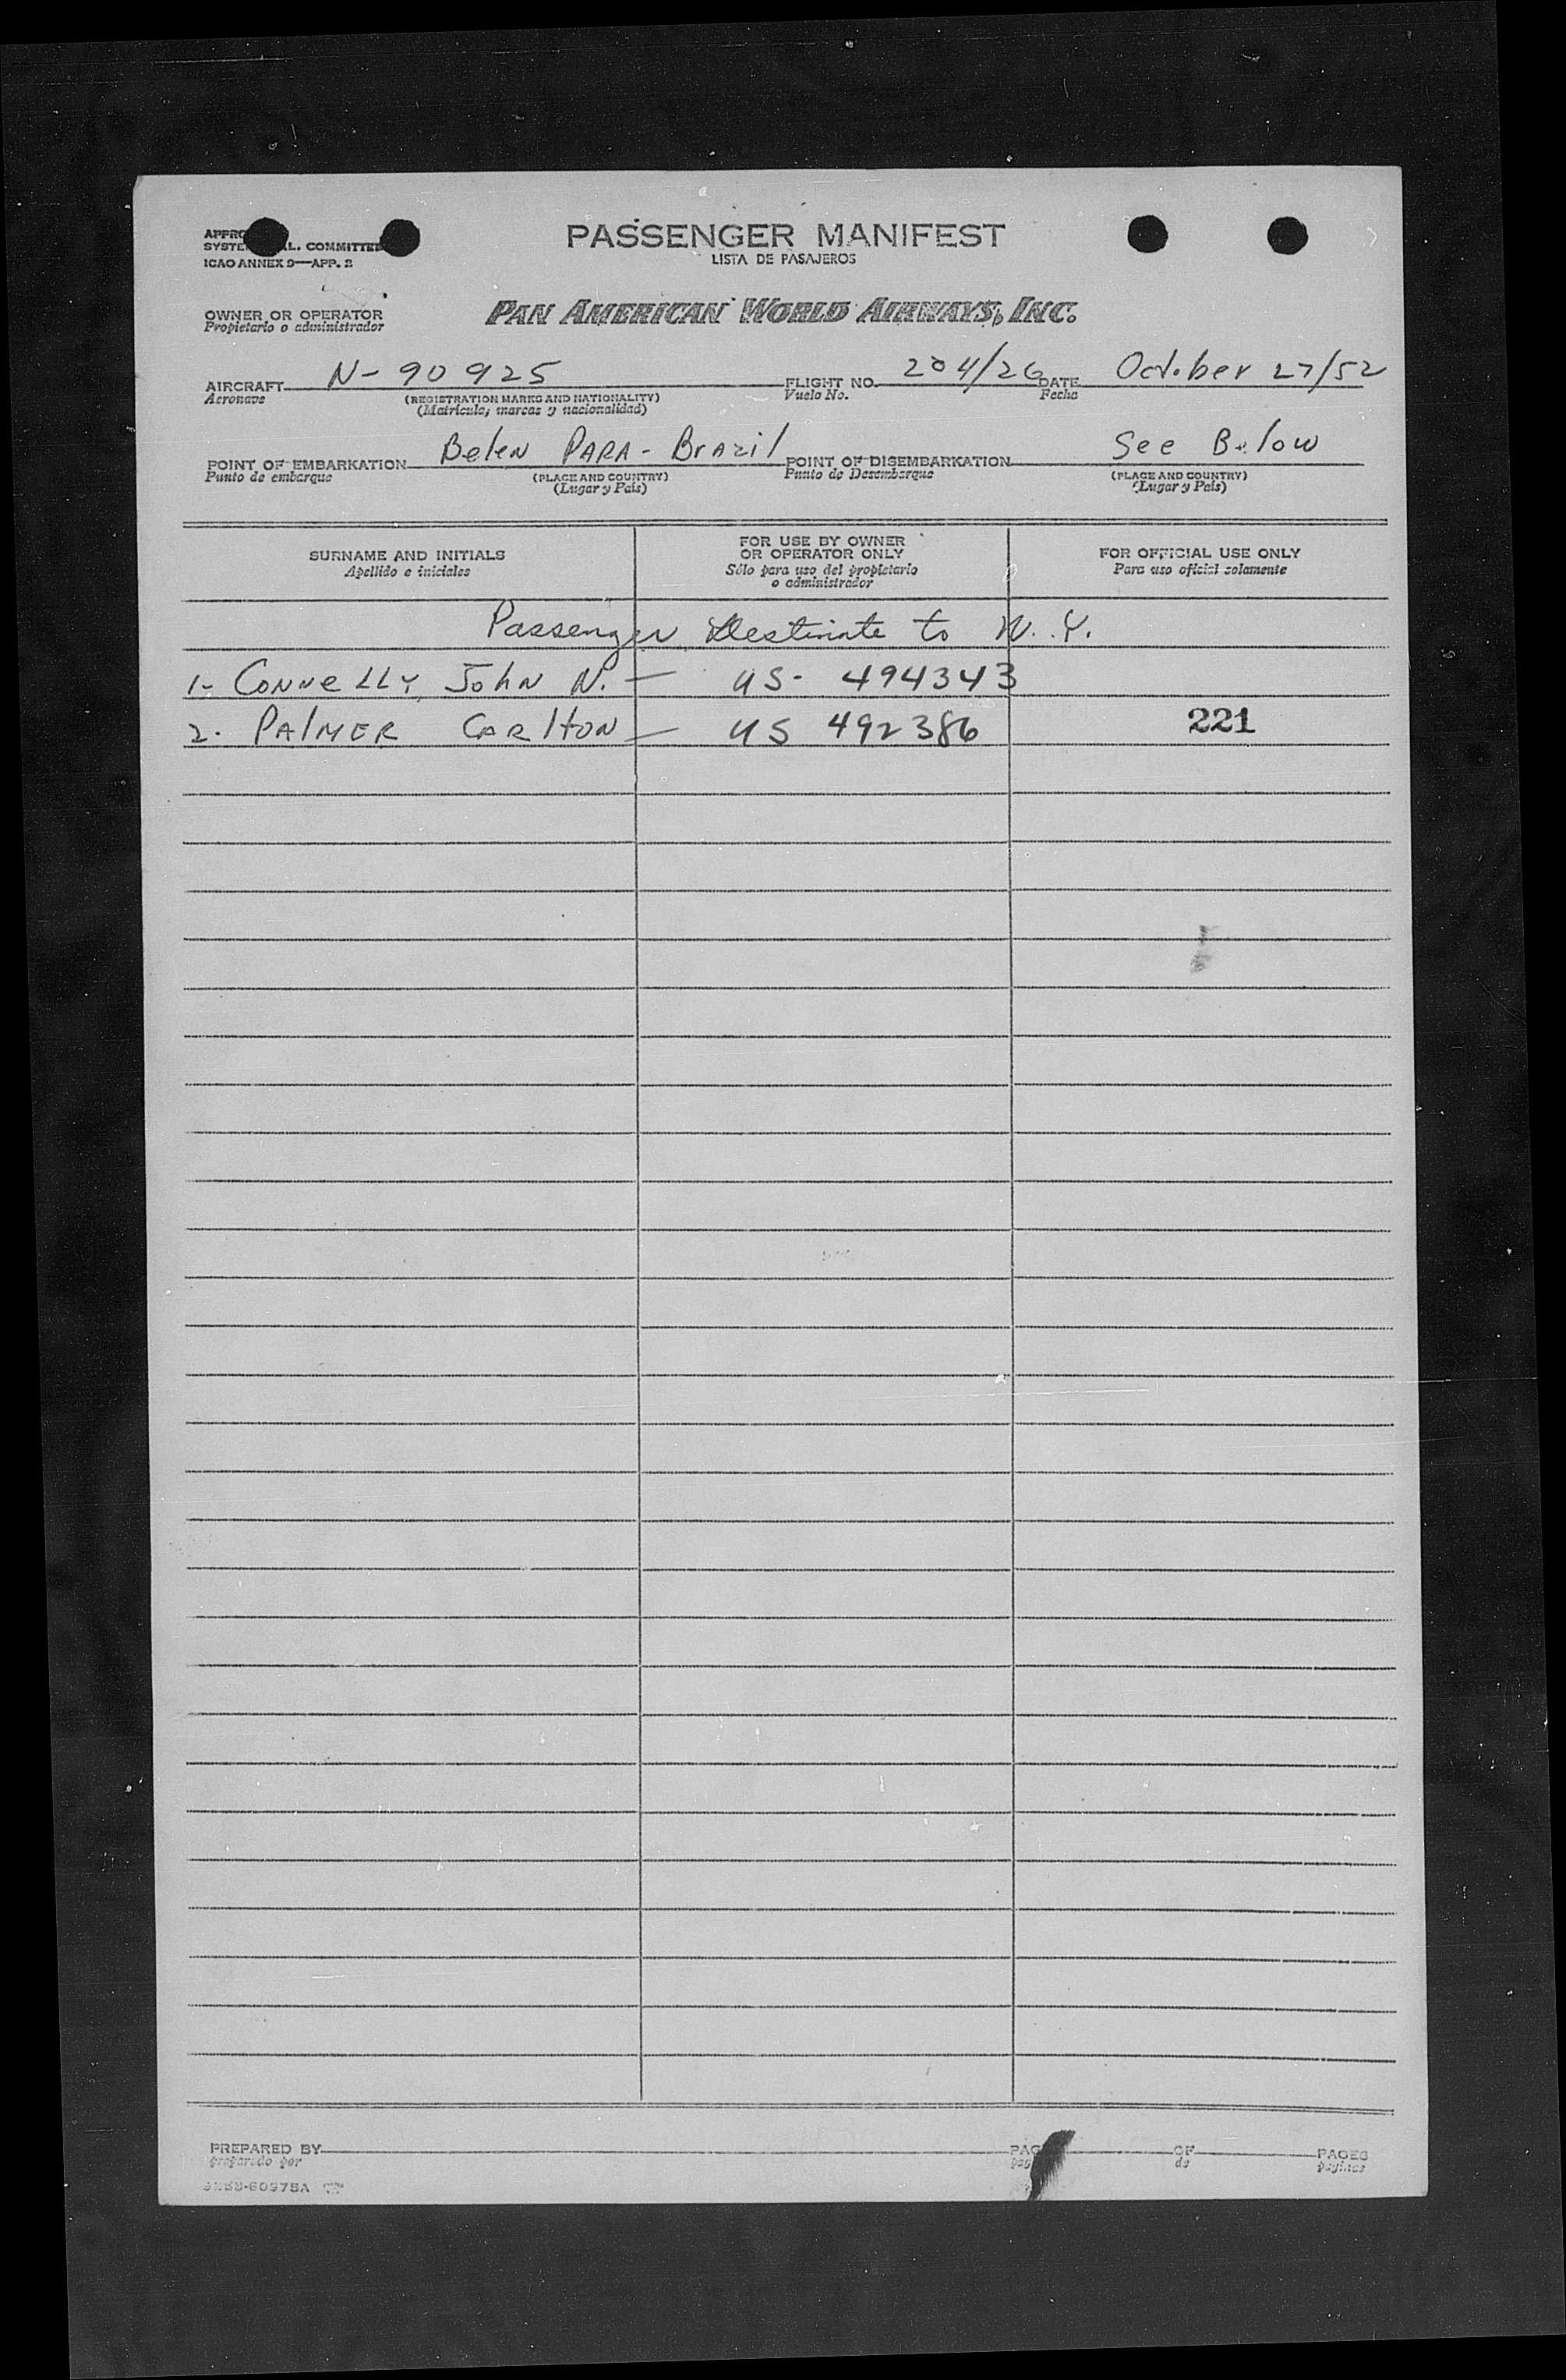 PASSENGER MANIFEST
LISTA DE PASAJEROS
L. COMMITTEE
ICAO ANNEX 9—APP. 2
OWNER OR OPERATOR
Propietario o administrador
PAN AMERICAN WORLD AIRWAYS, INC.
AIRCRAFT N- 90925 FLIGHT NO. 204/26 DATE October 27/52
Aeronave (REGISTRATION MARKS AND NATIONALITY) Vuelo No. Fecha
(Matrícula, marcas y nacionalidad)
POINT OF EMBARKATION Belen PARA - Brazil POINT OF DISEMBARKATION See Below
Punto de embarque (PLACE AND COUNTRY) Punto de Desembarque (PLACE AND COUNTRY)
(Lugar y País) (Lugar y País)
SURNAME AND INITIALS
Apellido e iniciales
FOR USE BY OWNER
OR OPERATOR ONLY
Sólo para uso del propietario
o administrador
FOR OFFICIAL USE ONLY
Para uso oficial solamente
Passenger Destinate to N.Y.
1- CONNELLY, JOHN N. — US- 494343
2. PALMER CARLTON — US 492386 221
PREPARED BY OF PAGES
preparado por de páginas